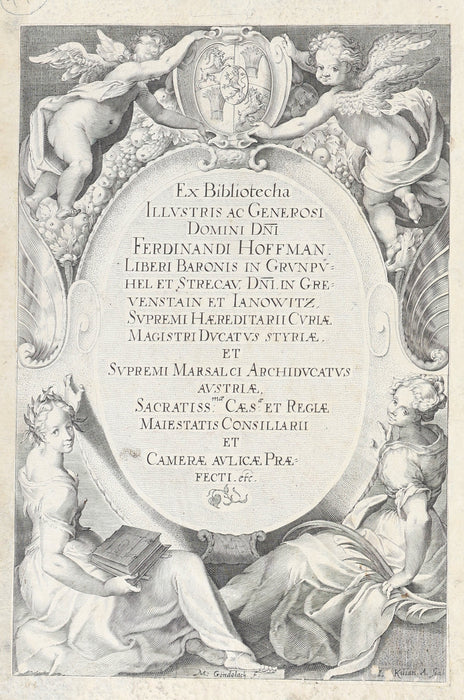 Ex Bibliotecha
Illvstris ac Generosi
Domini Dñi
Ferdinandi Hoffman.
Liberi Baronis in Grvnpv=
hel et Strecav, Dñi. in Gre-
venstain et Ianowitz,
Svpremi Hæreditarii Cvriæ
Magistri Dvcatvs Styriæ,
et
Svpremi Marsalci Archidvcatvs
avstriæ,
Sacratiss:mæ Cæs:æ et Regiæ
Maiestatis Consiliarii
et
Cameræ avlicæ Præ-
fecti. etc.
M: Gondolach F.
Kilian. A.